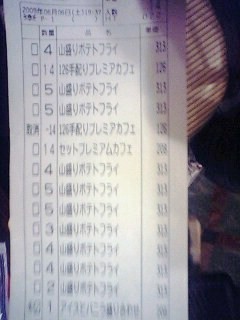 2009年06月06日(土)19:37 人数
数量 品名 単価
□ 4 山盛りポテトフライ 313
□ 14 126手配りプレミアカフェ 126
□ 5 山盛りポテトフライ 313
□ 5 山盛りポテトフライ 313
取消 -14 126手配りプレミアカフェ 126
□ 14 セットプレミアムカフェ 208
□ 4 山盛りポテトフライ 313
□ 5 山盛りポテトフライ 313
□ 5 山盛りポテトフライ 313
□ 3 山盛りポテトフライ 313
□ 4 山盛りポテトフライ 313
□ 4 山盛りポテトフライ 313
□ 2 山盛りポテトフライ 313
1